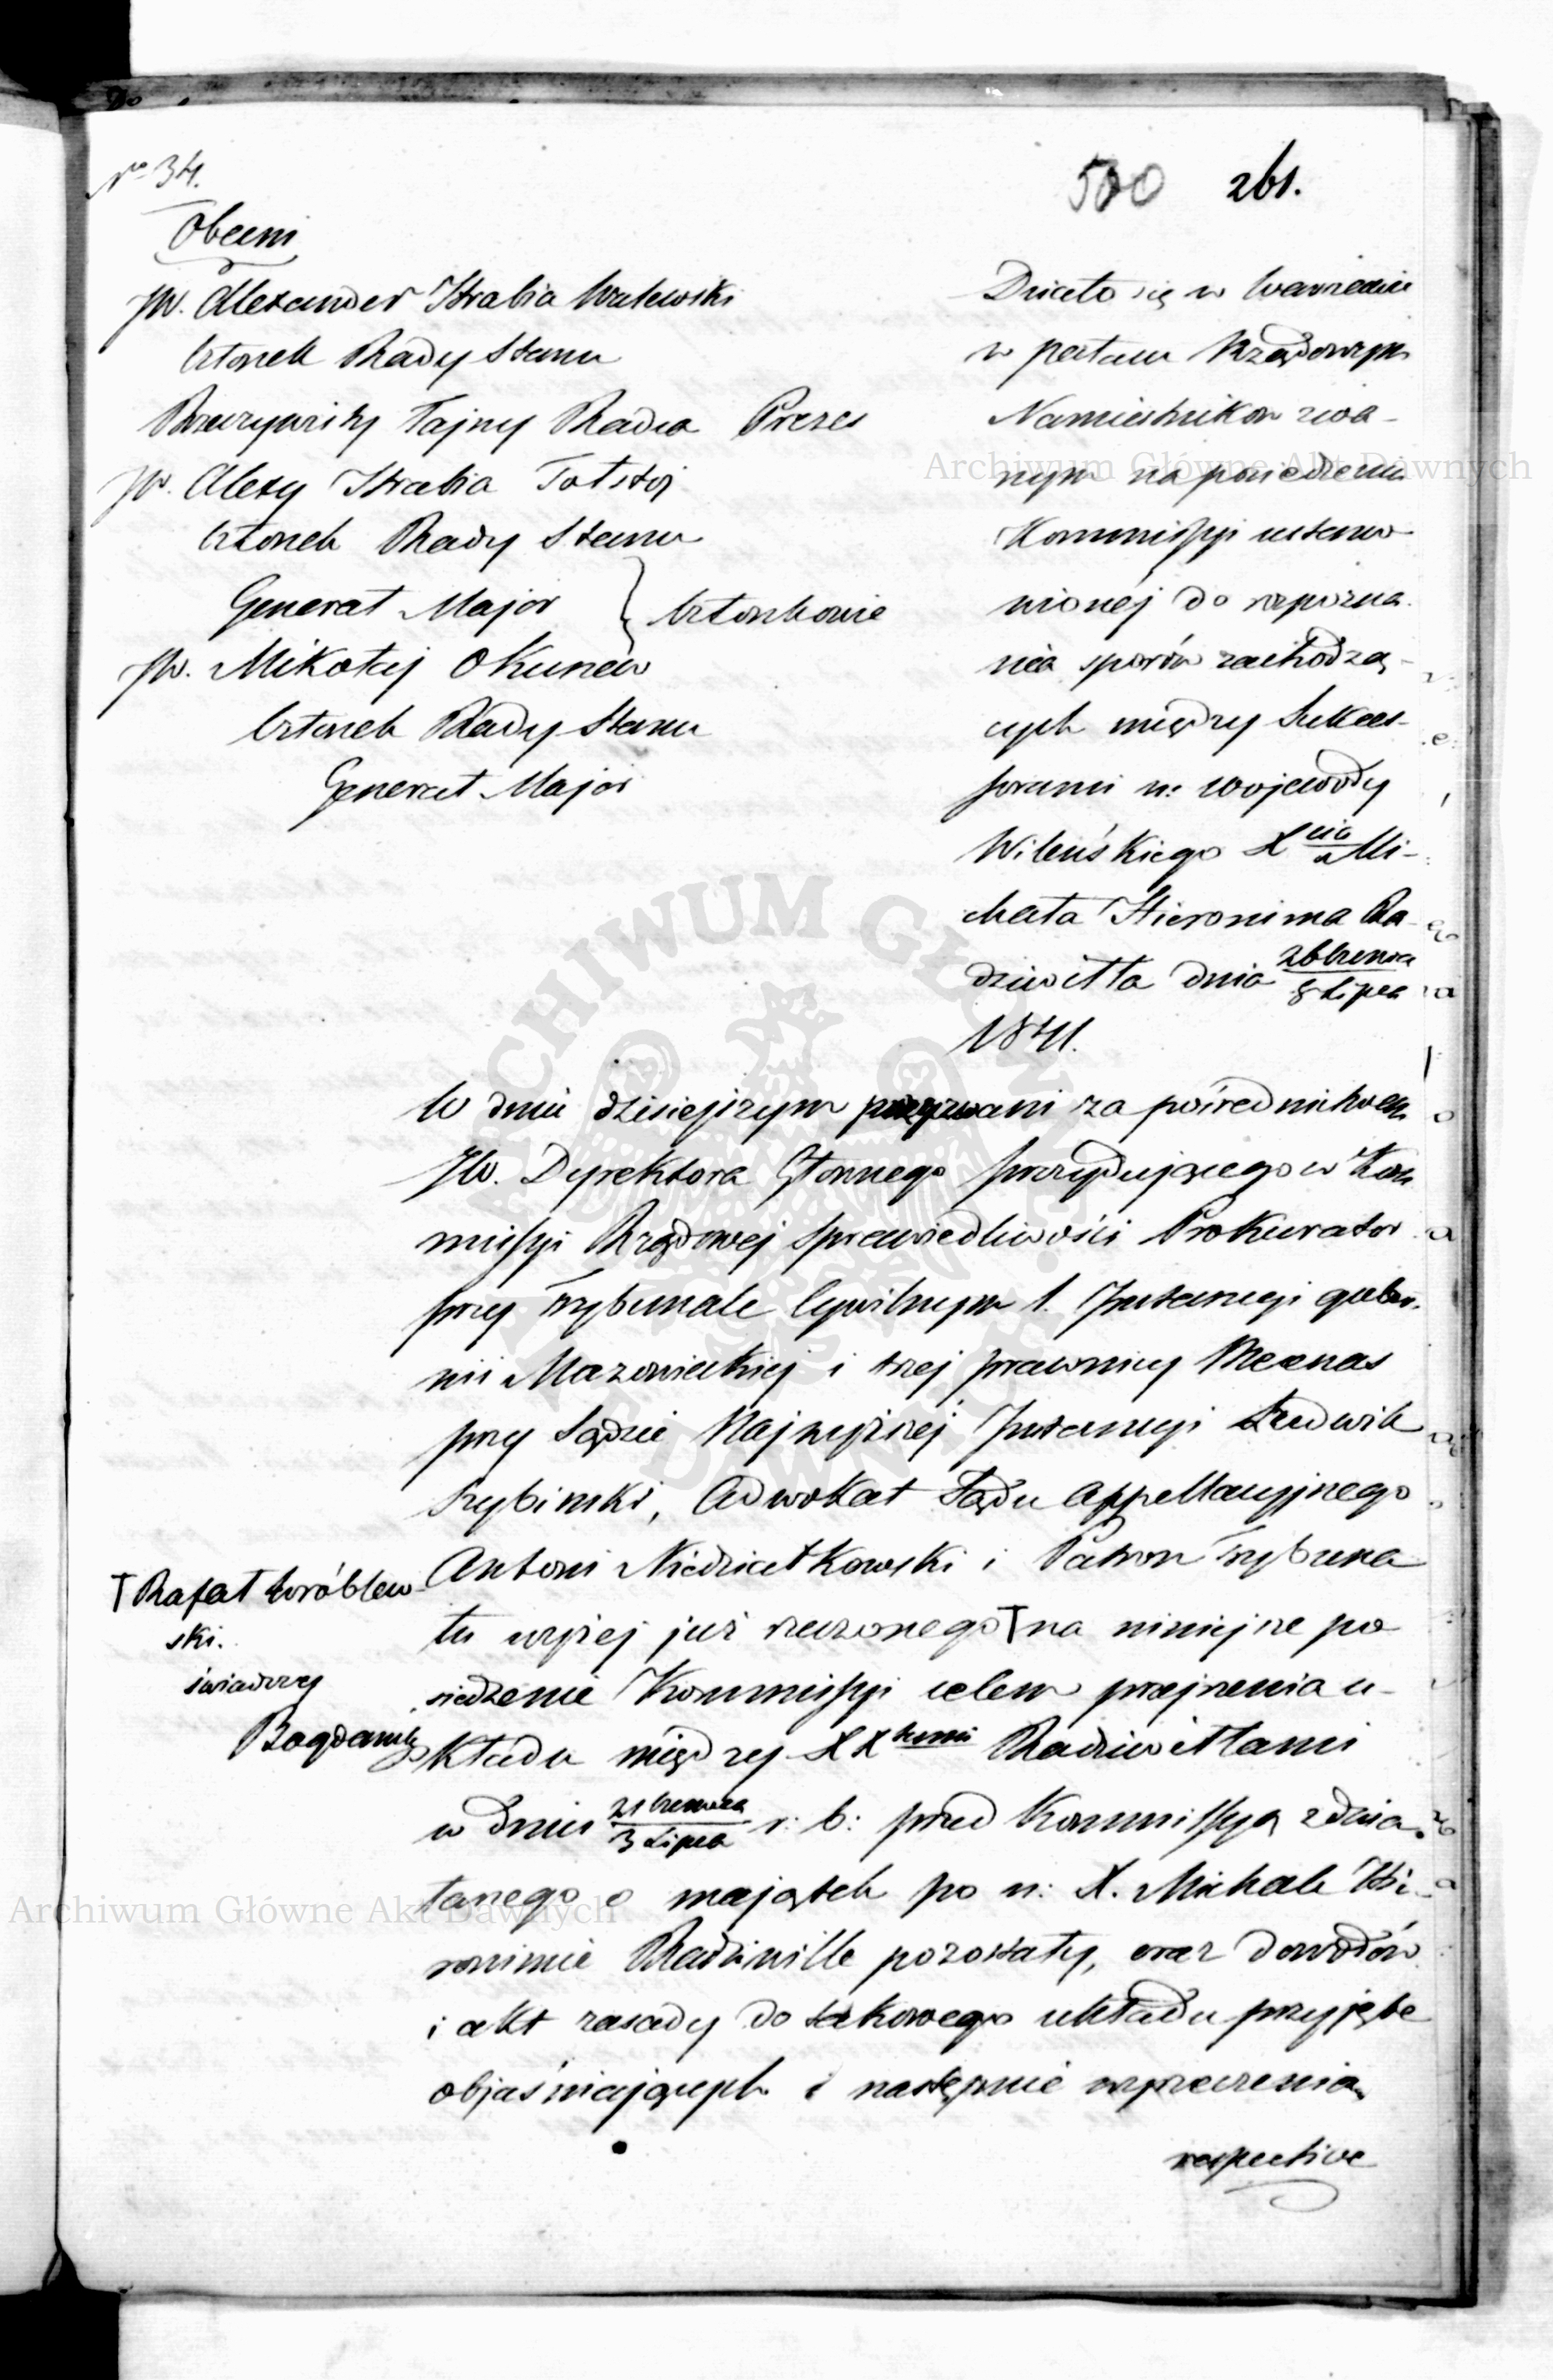 No 34.
500 261.
Obecni
JW. Alexander Hrabia Walewski
Członek Rady Stanu
Rzeczywisty Tajny Radca Prezes
JW. Alexy Hrabia Tołstoj
Członek Rady Stanu
Generał Major } Członkowie
JW. Mikołaj Okunew
Członek Rady Stanu
Generał Major
Działo się w Warszawie
w pałacu Rządowym
Namiestnikow zwa-
nym na posiedzeniu
Kommissyi ustano
wionéj do rozpozna
nia sporów zachodzą-
cych między Sukces-
sorami n: Wojewody
Wileńskiego Xcia Mi-
chała Hieronima Ra-
dziwiłła dnia 26 Czerwca / 8 Lipca
1841.
W dniu dzisiejszym przyzwani za pośrednictwem
JW. Dyrektora Głównego prezydującego w Kom
missyi Rządowej Sprawiedliwości Prokurator
przy Trybunale Cywilnym 1. Instancyi guber-
nii Mazowieckiej i trzej prawnicy Mecenas
przy Sądzie Najwyższej Instancyi Ludwik
Szybiński, Adwokat Sądu Appellacyjnego
Antoni Niedziałkowski i Patron Trybuna
łu wyżej już rzeczonego † na niniejsze po
siedzenie Kommissyi celem przejrzenia u-
kładu między XXtami Radziwiłłami
w dniu 21 Czerwca / 3 Lipca r: b: przed Kommissyą zdzia
łanego o majątek po n: X. Michale Hie
ronimie Radziwille pozostały, oraz dowodów
i akt zasady do takowego układu przyjęte
objaśniających i następnie wyrzeczenia
respective
† Rafał Wróblew-
ski.
świadczy
Archiwum Główne Akt Dawnych
Archiwum Główne Akt Dawnych
ARCHIWUM GŁÓWNE AKT DAWNYCH